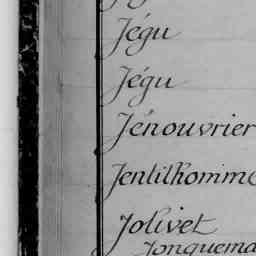 Jégu
Jégu
Jénouvrier
Jentilhomme
Jolivet
Jonquema